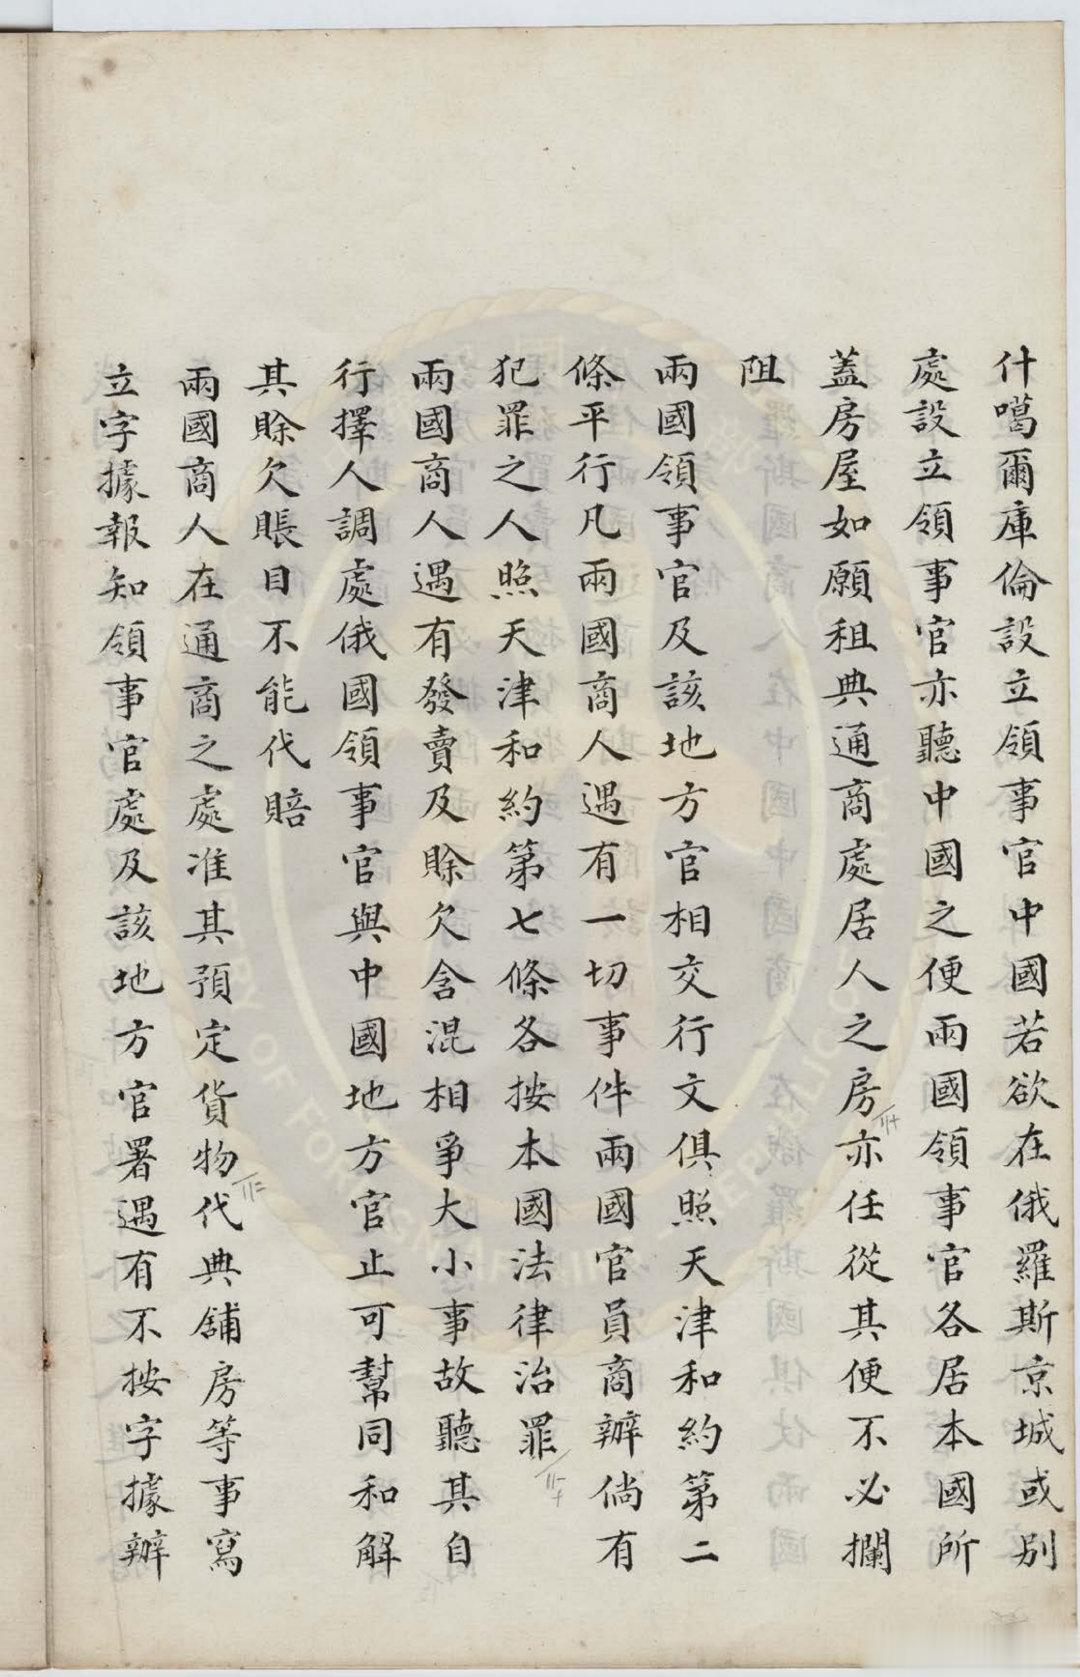 什噶爾庫倫設立領事官中國若欲在俄羅斯京城或別
處設立領事官亦聽中國之便兩國領事官各居本國所
蓋房屋如願租典通商處居人之房亦任從其便不必攔
阻
兩國領事官及該地方官相交行文俱照天津和約第二
條平行凡兩國商人遇有一切事件兩國官員商辦倘有
犯罪之人照天津和約第七條各按本國法律治罪
兩國商人遇有發賣及賒欠含混相爭大小事故聽其自
行擇人調處俄國領事官與中國地方官止可幫同和解
其賒欠賬目不能代賠
兩國商人在通商之處准其預定貨物代典舖房等事寫
立字據報知領事官處及該地方官署遇有不按字據辦